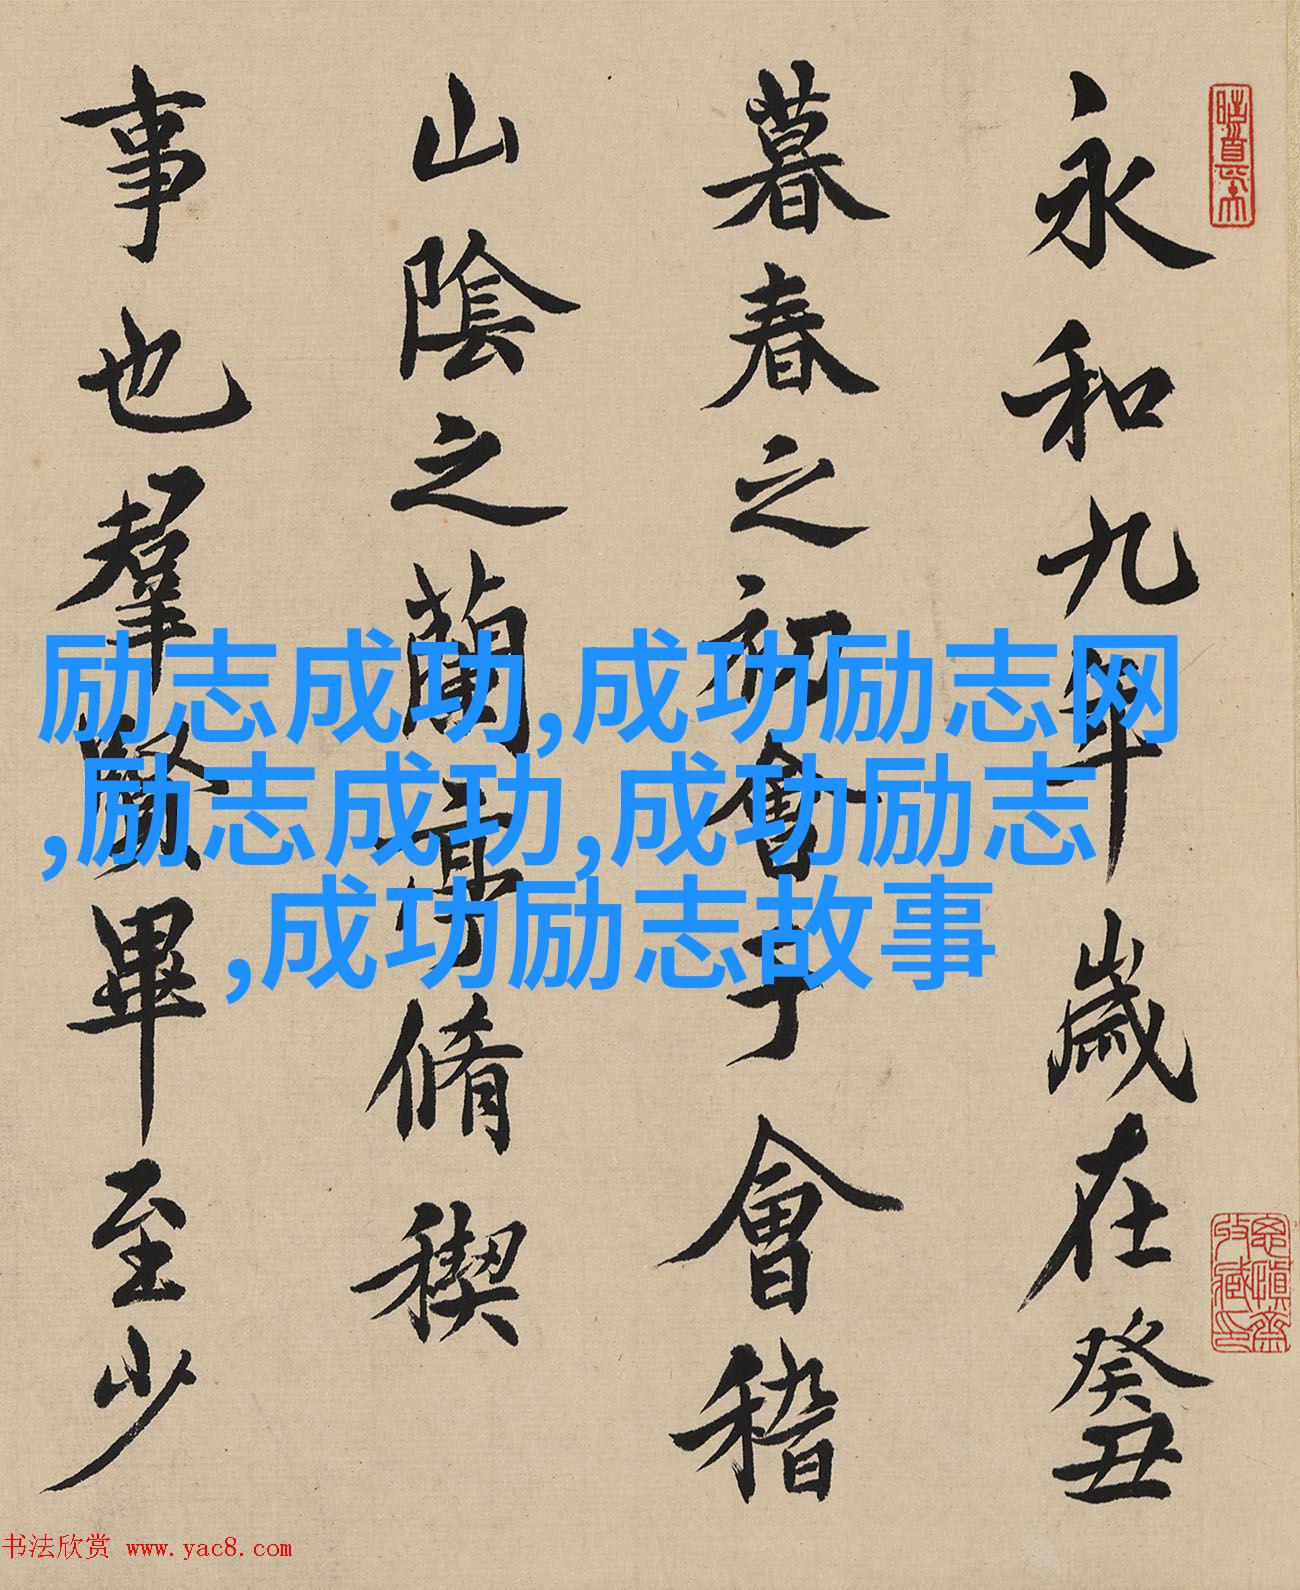 永和九年歲在癸丑
暮春之初會于會稽
山陰之蘭亭脩稧
事也羣賢畢至少
励志成功,成功励志网
,励志成功,成功励志
,成功励志故事
书法欣赏 www.yac8.com